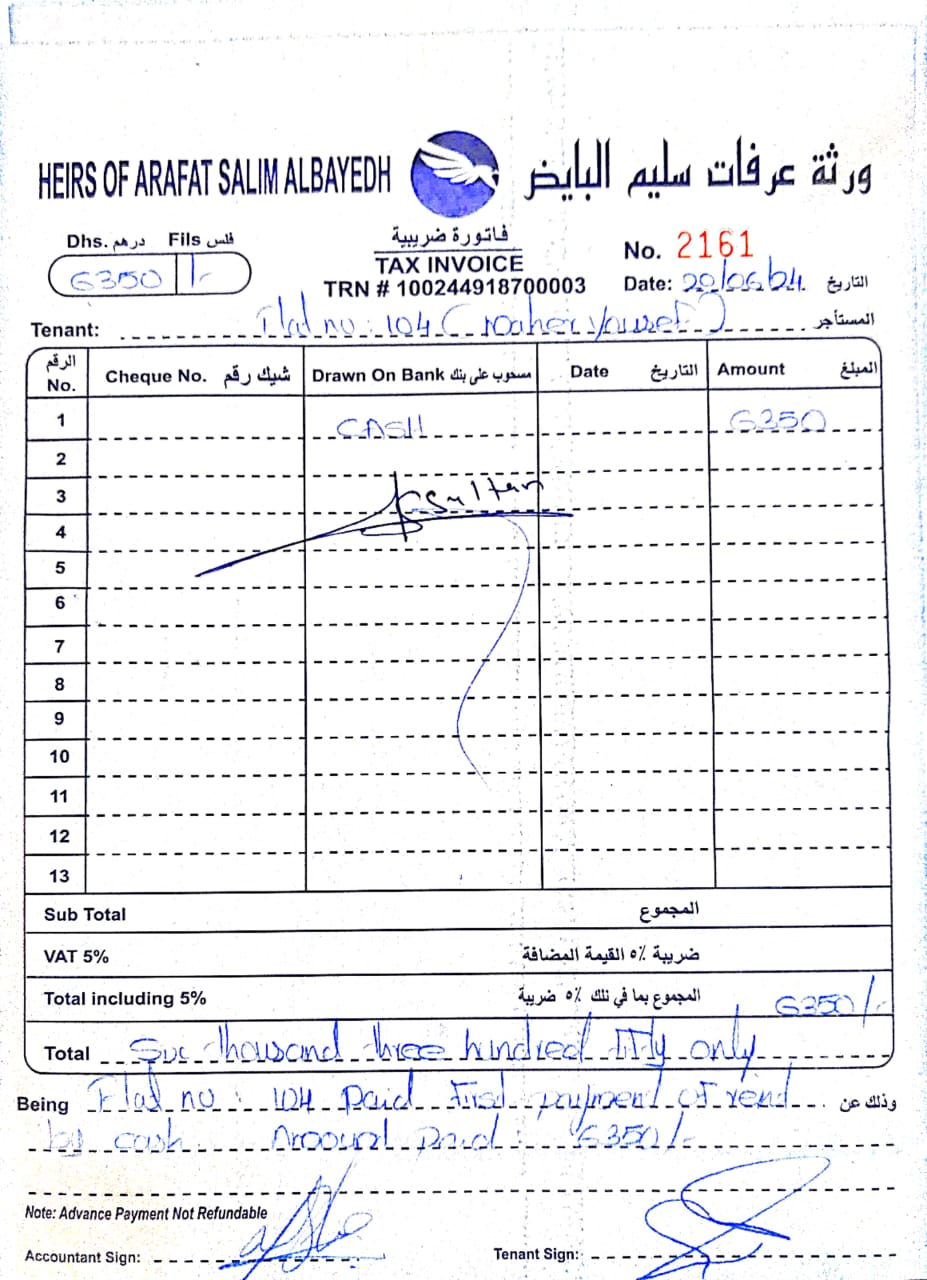 HEIRS OF ARAFAT SALIM ALBAYEDH ورثة عرفات سليم البايض
Dhs. درهم Fils فلس
6350 /-
فاتورة ضريبية
TAX INVOICE
TRN # 100244918700003
No. 2161
Date: 20/06/24 التاريخ
Tenant: Flat no: 104 ( Youssef ) المستأجر
الرقم No. Cheque No. شيك رقم Drawn On Bank مسحوب على بنك Date التاريخ Amount المبلغ
1 CASH 6350
2
3 Sultan
4
5
6
7
8
9
10
11
12
13
Sub Total المجموع
VAT 5% ضريبة ٥٪ القيمة المضافة
Total including 5% المجموع بما في تلك ٥٪ ضريبة 6350/-
Total Six thousand three hundred fifty only
Being Flat no: 104 Paid First payment of rent وذلك عن
by cash Amount paid: 6350/-
Note: Advance Payment Not Refundable
Accountant Sign: Tenant Sign: